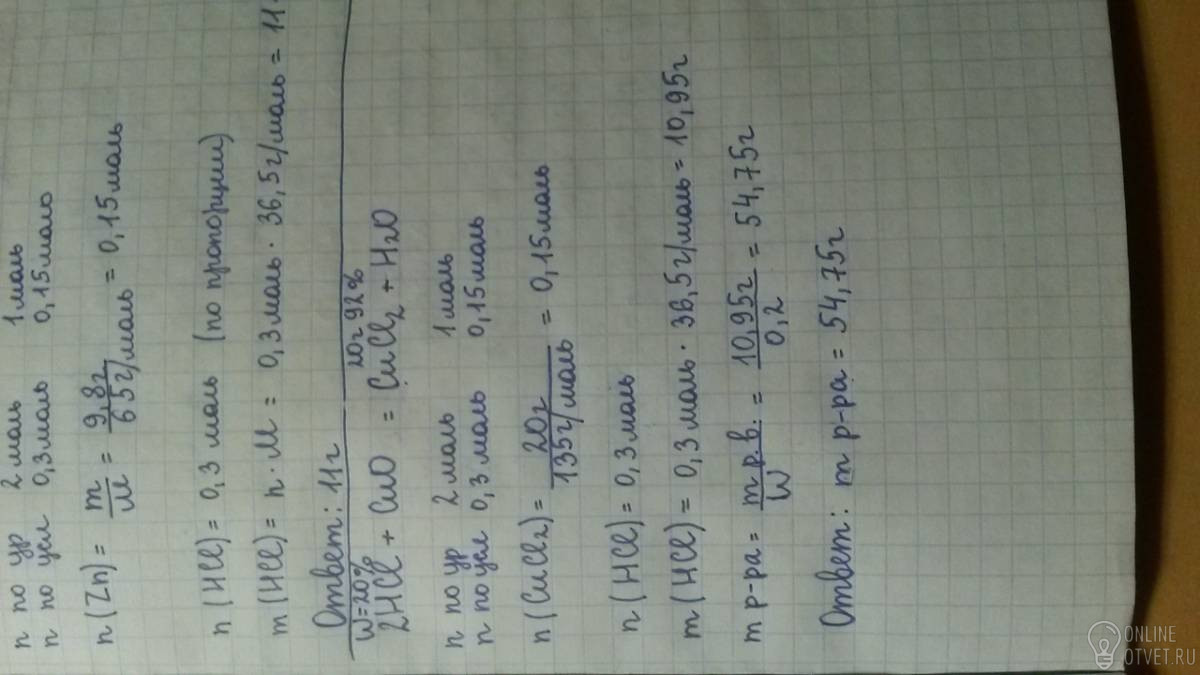 n по ур 2 моль 1 моль
n по усл 0,3 моль 0,15 моль
n (Zn) = m/M = 9,8г/65г/моль = 0,15 моль
n (HCl) = 0,3 моль (по пропорции)
m (HCl) = n · M = 0,3 моль · 36,5г/моль = 11
Ответ: 11г
W=20% 20г 92%
2HCl + CuO = CuCl2 + H2O
n по ур 2 моль 1 моль
n по усл 0,3 моль 0,15 моль
n (CuCl2) = 20г/135г/моль = 0,15 моль
n (HCl) = 0,3 моль
m (HCl) = 0,3 моль · 36,5г/моль = 10,95г
m р-ра = m р.в./W = 10,95г/0,2 = 54,75г
Ответ: m р-ра = 54,75г
ONLINE
OTVET.RU